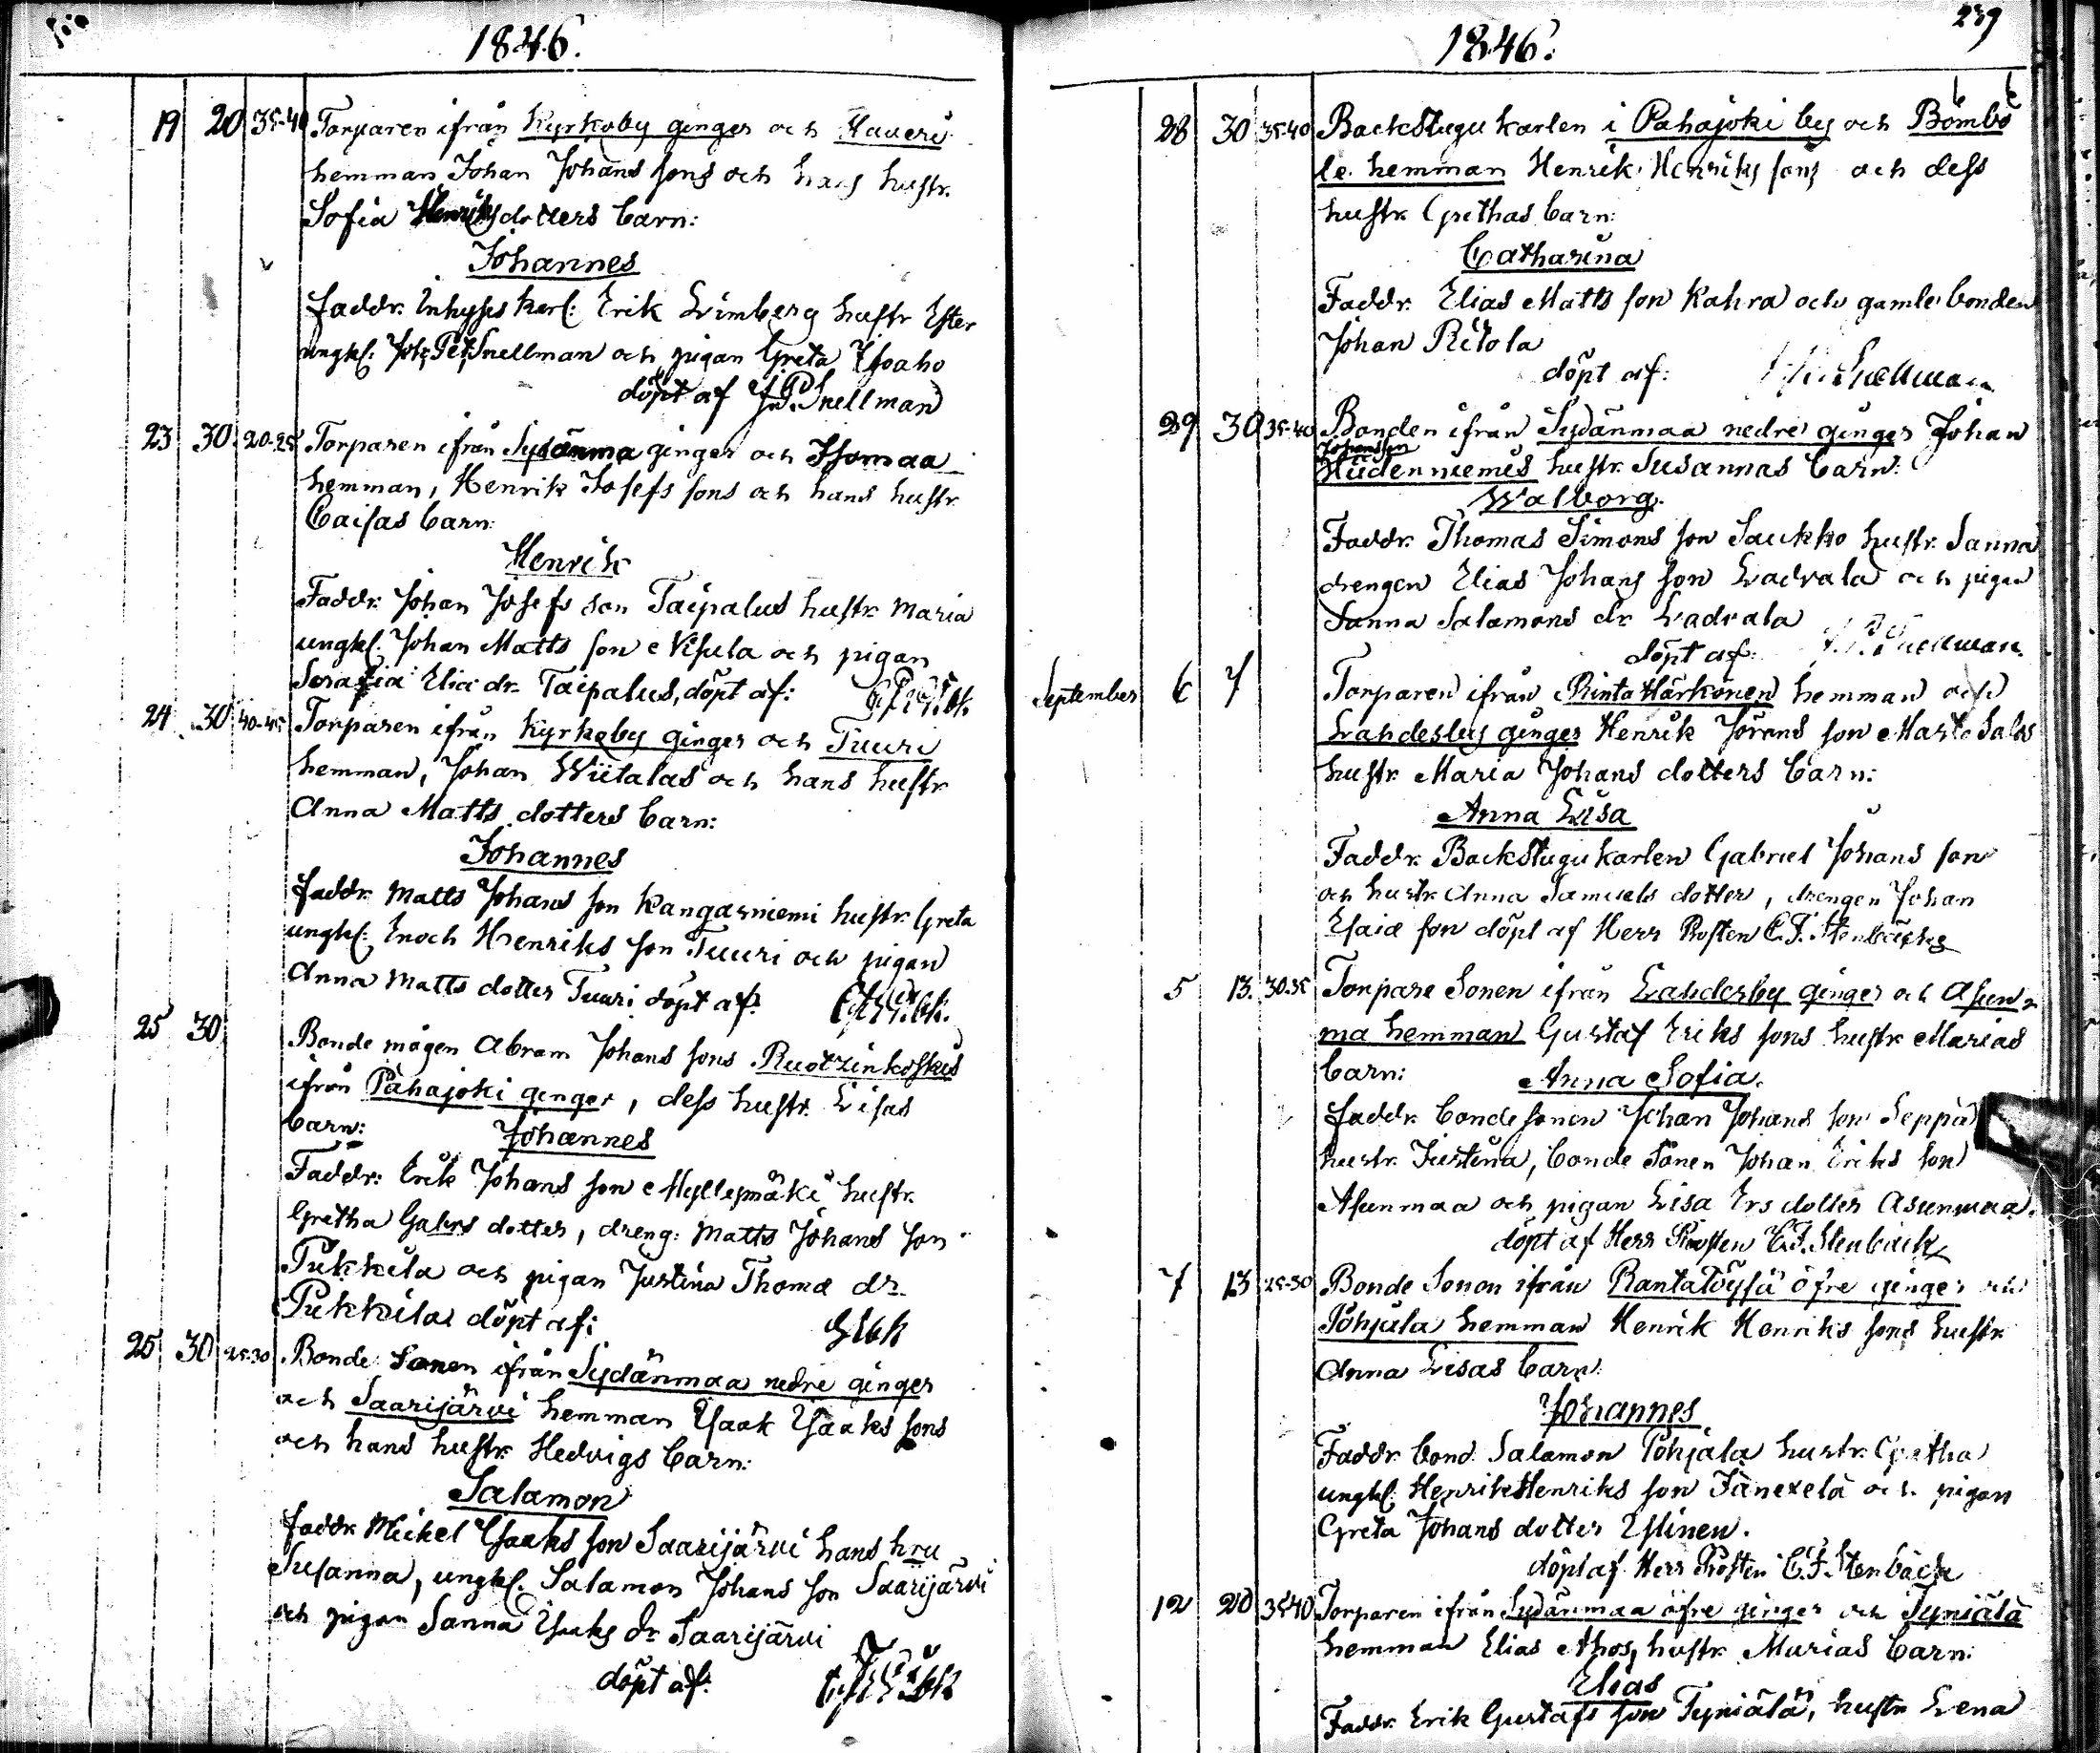 1846.
19 20 35-40 Torparen ifrån Kyrkoby ginger och Haveri
hemman Johan Johans sons och hans hustr.
Sofia Henriksdotters barn:
Johannes
faddr. Inhyses karl: Erik Limberg hustr Ester
ungkl. Joh. Pet. Snellman och pigan Greta Isoaho
döpt af J.P. Snellman
23 30 20-25 Torparen ifrån Sydänma ginger och Isomaa
hemman, Henrik Josefs sons och hans hustr.
Caisas barn:
Henrik
Faddr. Johan Josefs son Taipalus hustr Maria
ungkl. Johan Matts son Nisula och pigan
Serafia Eliæ dr. Taipalus, döpt af:
24 30 40-45 Torparen ifrån Kyrkoby ginger och Tuuri
hemman, Johan Wiitalas och hans hustr
Anna Matts dotters barn:
Johannes
faddr. Matts Johans son Kangasniemi hustr. Greta
ungkl: Enoch Henriks son Tuuri och pigan
Anna Matts dotter Tuuri döpt af:
25 30 Bonde mågen Abram Johans sons Ruotzinkoskis
ifrån Pahajoki ginger, dess hustr. Lisas
barn: Johannes
Faddr: Erik Johans son Myllymäki hustr.
Gretha Gabrs dotter, dreng: Matts Johans son
Pukkila och pigan Justina Thomæ dr.
Pukkila döpt af:
25 30 25-30 Bonde Sonen ifrån Sydänmaa nedre ginger
och Saarijärvi hemman Isaak Isaaks sons
och hans hustr. Hedvigs barn:
Salamon
faddr. Mickel Isaaks son Saarijärvi hans hru
Susanna, ungkl. Salamon Johans son Saarijärvi
och pigan Sanna Isaaks dr Saarijärvi
döpt af:
239
1846.
28 30 35-40 Backstugu karlen i Pahajoki by och Bömbö
le hemman Henrik Henriks sons och dess
hustr. Grethas barn:
Catharina
Faddr. Elias Matts son Kahra och gamle bonden
Johan Ritola
döpt af: Snellman
29 30 35-40 Bonden ifrån Sydänmaa nedre ginger Johan
Johansson
Hiidenniemis hustr. Susannas barn:
Walborg.
Faddr. Thomas Simons son Saukko hustr. Sanna
drengen Elias Johans son Ladvala och pigan
Sanna Salamons dr Ladvala
döpt af: Snellman
September 6 7 Torparen ifrån RintaHärkönen hemman och
Lahdesby ginger Henrik Jörans son Marto Salos
hustr. Maria Johans dotters barn:
Anna Lisa
Faddr. Backstugu karlen Gabriel Johans son
och hustr. Anna Samuels dotter, drengen Johan
Esaiæ son döpt af Herr Prosten C.F. Stenbäck
5 13. 30-35 Torpare Sonen ifrån Lahdesby ginger och Asun
ma hemman Gustaf Eriks sons hustr. Marias
barn: Anna Sofia.
faddr. bondesonen Johan Johans son Seppä
hustr. Justina, bonde Sonen Johan Eriks son
Asunmaa och pigan Lisa Ers dotter Asunmaa.
döpt af Herr Prosten C.F. Stenbäck
7 13 25-30 Bonde Sonen ifrån RantaTöysä öfre ginger och
Pohjala hemman Henrik Henriks sons hustr.
Anna Lisas barn:
Johannes
Faddr. bond. Salamon Pohjala hustr. Gretha
ungkl. Henrik Henriks son Jänexelä och pigan
Greta Johans dotter Eslinen.
döpt af Herr Prosten C.F. Stenbäck
12 20 35-40 Torparen ifrån Sydänmaa öfre ginger och Tyniälä
hemman Elias Ahos, hustr. Marias barn:
Elias
Faddr. Erik Gustafs son Tyniälä, hustr. Lena